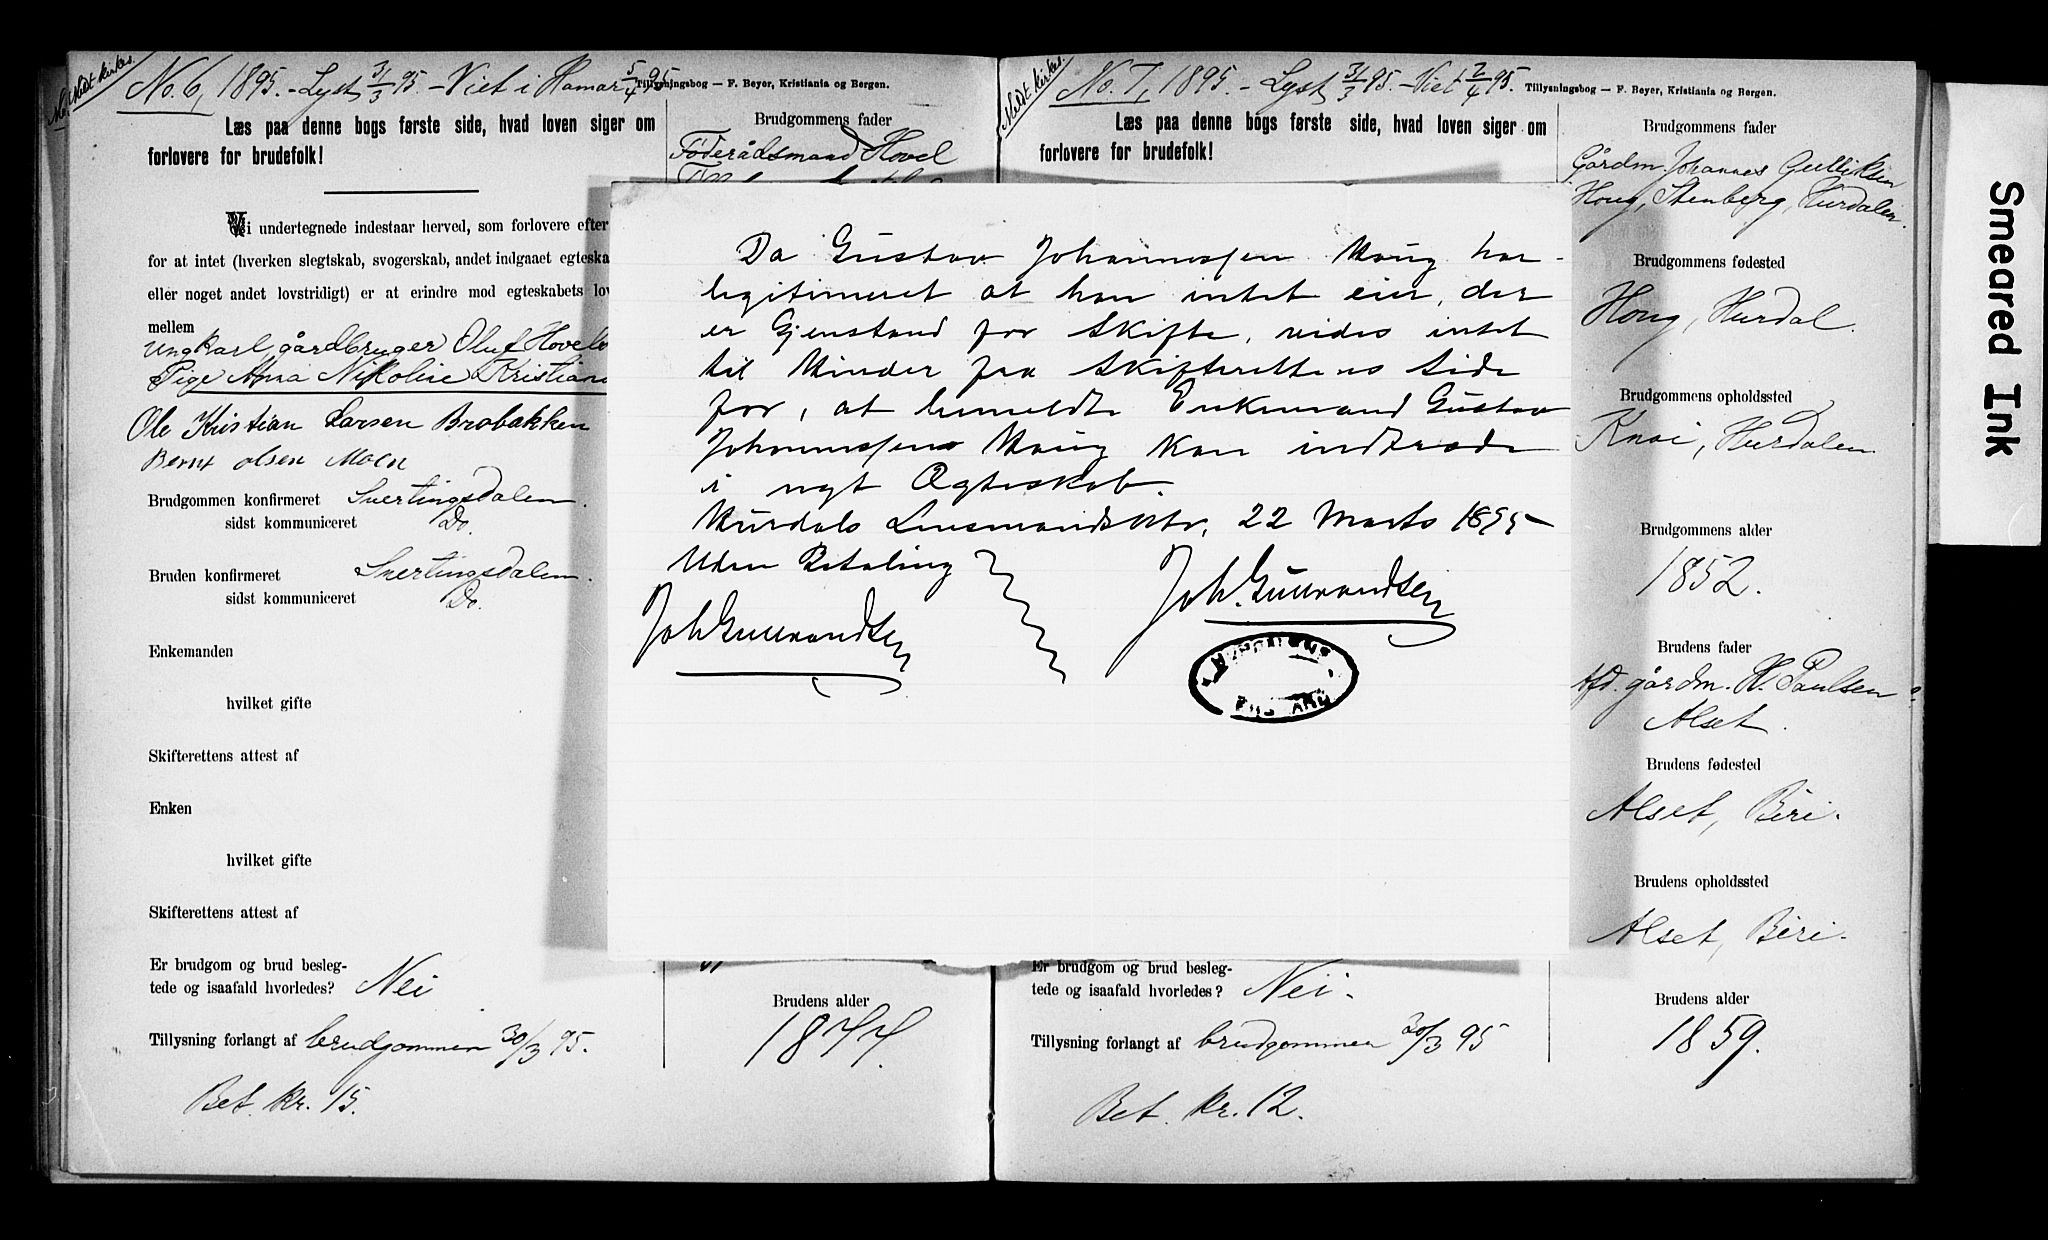 Meldt kirkes.
No. 6, 1895. - Lyst 31/3 95. - Viet i Hamar 5/4 95
Tillysningsbog — F. Beyer, Kristiania og Bergen.
Læs paa denne bogs første side, hvad loven siger om
forlovere for brudefolk!
Brudgommens fader
Føderådsmand Hovel
Vi undertegnede indestaar herved, som forlovere efter
for at intet (hverken slegtskab, svogerskab, andet indgaaet egteska
eller noget andet lovstridigt) er at erindre mod egteskabets lov
mellem
Ungkarl, gårdbruger Oluf Hovels
Pige Anna Nikoline Kristians
Ole Kristian Larsen Brobakken
Bernt olsen Moen
Brudgommen konfirmeret Snertingsdalen.
sidst kommuniceret Do.
Bruden konfirmeret Snertingsdalen.
sidst kommuniceret Do.
Enkemanden
hvilket gifte
Skifterettens attest af
Enken
hvilket gifte
Skifterettens attest af
Er brudgom og brud besleg-
tede og isaafald hvorledes? Nei
Tillysning forlangt af brudgommen 30/3 95.
Bet. kr. 15.
Brudens alder
1877.
Da Gustav Johannessen Houg har
legitimeret at han intet eier, der
er Gjenstand for Skifte, vides intet
til Hinder fra Skifterettens Side
for, at bemeldte Enkemand Gustav
Johannessen Houg kan indtræde
i nyt Ægteskab.
Hurdals Lensmandsktr, 22 Marts 1895
Uden Betaling
Joh. Gulbrandsen
Joh Gulbrandsen
Meldt kirkes.
No. 7, 1895. - Lyst 31/3 95. - Viet 2/4 95.
Tillysningsbog — F. Beyer, Kristiania og Bergen.
Læs paa denne bogs første side, hvad loven siger om
forlovere for brudefolk!
Brudgommens fader
Gårdm. Johannes Gulliksen
Houg, Stenberg, Hurdalen.
Brudgommens fødested
Houg, Hurdal.
Brudgommens opholdssted
Knai, Hurdalen
Brudgommens alder
1852.
Brudens fader
Afd. gårdm. H. Paulsen
Alset.
Brudens fødested
Alset, Biri.
Brudens opholdssted
Alset, Biri.
Er brudgom og brud besleg-
tede og isaafald hvorledes? Nei.
Tillysning forlangt af brudgommen 30/3 95
Bet. kr. 12.
Brudens alder
1859.
Smeared Ink